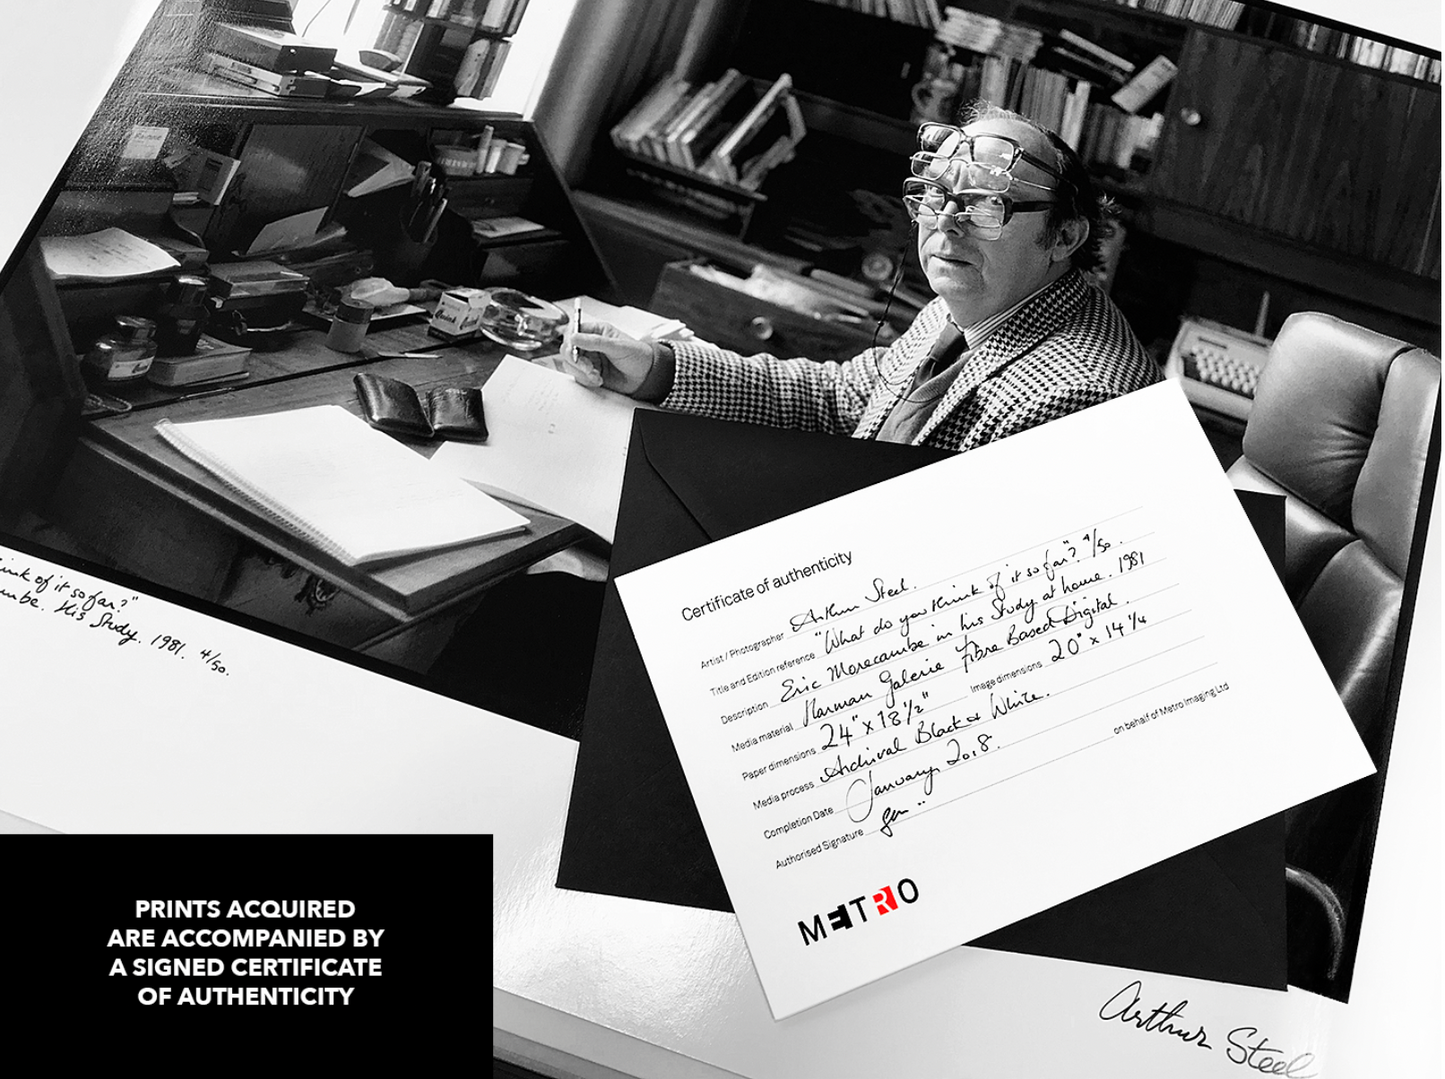 ink of it so far?"
mbe. His Study. 1981. 4/50.
Certificate of authenticity
Artist / Photographer Arthur Steel.
Title and Edition reference "What do you think of it so far"? 4/50.
Description Eric Morecambe in his Study at home. 1981
Media material Harman Galerie Fibre Based Digital.
Paper dimensions 24" x 18½" Image dimensions 20" x 14¼
Media process Archival Black & White.
Completion Date January 2018.
Authorised Signature
on behalf of Metro Imaging Ltd
METRO
PRINTS ACQUIRED
ARE ACCOMPANIED BY
A SIGNED CERTIFICATE
OF AUTHENTICITY
Arthur Steel